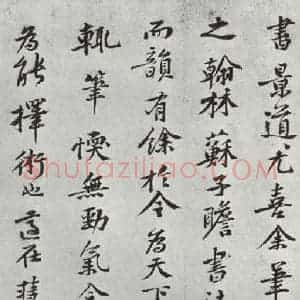 書景道尤喜余筆
之翰林蘇子瞻書法
而韻有餘於今為天下
輒筆愞無勁氣令
為能擇術也適在
shufaziliao.com